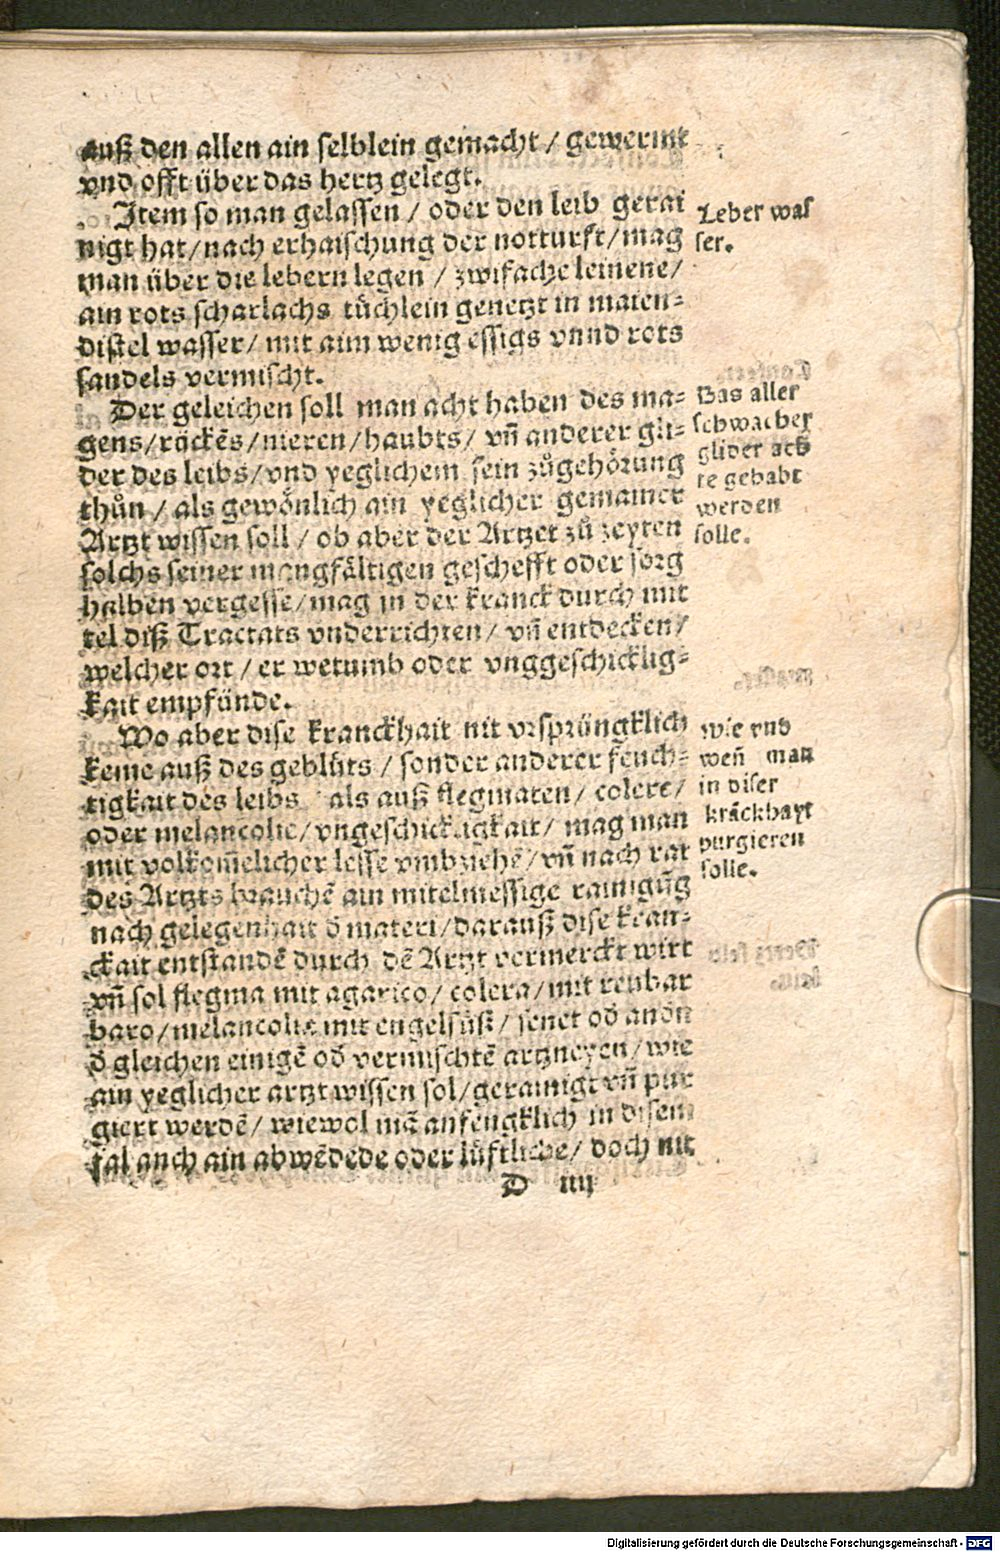 auß den allen ain selblein gemacht / gewermt
vnd offt über das hertz gelegt.
Item so man gelassen / oder den leib gerai
nigt hat / nach erhaischung der notturft / mag
man über die lebern legen / zwifache leinene /
ain rots scharlachs tüchlein genetzt in maien-
distel wasser / mit aim wenig essigs vnnd rots
sandels vermischt.
Leber was
ser.
Der geleichen soll man acht haben des ma-
gens / röckẽs / nieren / haubts / vñ anderer gli-
der des leibs / vnd yeglichem sein zůgehörung
thůn / als gewönlich ain yeglicher gemainer
Artzt wissen soll / ob aber der Artzet zů zeyten
solchs seiner mangfältigen geschefft oder sorg
halben vergesse / mag in der kranck durch mit
tel diß Tractats vnderrichten / vñ entdecken /
welcher ort / er wetumb oder vnggeschicklig-
kait empfünde.
Das aller
schwacher
glider ach
te gehabt
werden
solle.
Wo aber dise kranckhait nit vrsprüngklich
keme auß des geblüts / sonder anderer feuch-
tigkait des leibs als auß flegmaten / colere /
oder melancolie / vngeschickligkait / mag man
mit volkom̃elicher lesse vmbziehẽ / vñ nach rat
des Artzts brauchẽ ain mitelmessige rainigũg
nach gelegenhait d̃ materi / darauß dise kran-
ckait entstandẽ durch dẽ Artzt vermerckt wirt
vñ sol flegma mit agarico / colera / mit reubar
baro / melancolie mit engelsüß / senet od̃ andn̄
d̃ gleichen einigẽ od̃ vermischtẽ artzneyen / wie
ain yeglicher artzt wissen sol / gerainigt vñ pur
giert werdẽ / wiewol mã anfengklich in disem
fal auch ain abwẽdede oder lüftliche / doch nit
wie vnd
weñ man
in diser
krãckhayt
purgieren
solle.
D iiij
Digitalisierung gefördert durch die Deutsche Forschungsgemeinschaft - DFG